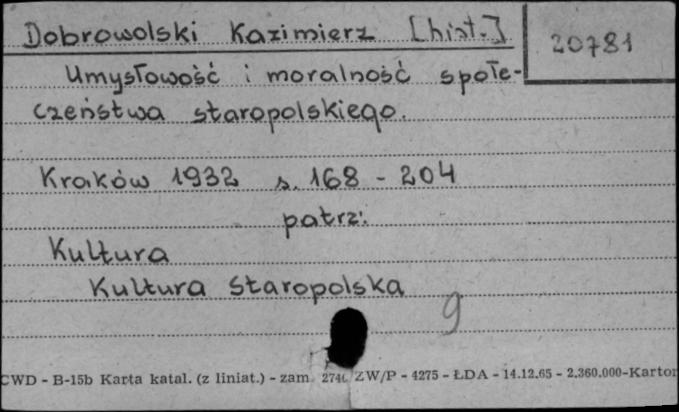 Dobrowolski Kazimierz [hist.]
20781
Umysłowość i moralność społe-
czeństwa staropolskiego.
Kraków 1932 s. 168 - 204
patrz:
Kultura
Kultura Staropolska
9
CWD - B-15b Karta katal. (z liniat.) - zam. ZW/P - 4275 - ŁDA - 14.12.65 - 2.360.000-Karton